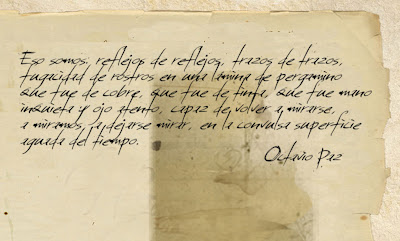 Eso somos, reflejos de reflejos, trazos de trazos,
fugacidad de rostros en una lámina de pergamino
que fue de cobre, que fue de tinta, que fue mano
inquieta y ojo atento, capaz de volver a mirarse,
a mirarnos, a dejarse mirar, en la convulsa superficie
aguada del tiempo.
Octavio Paz